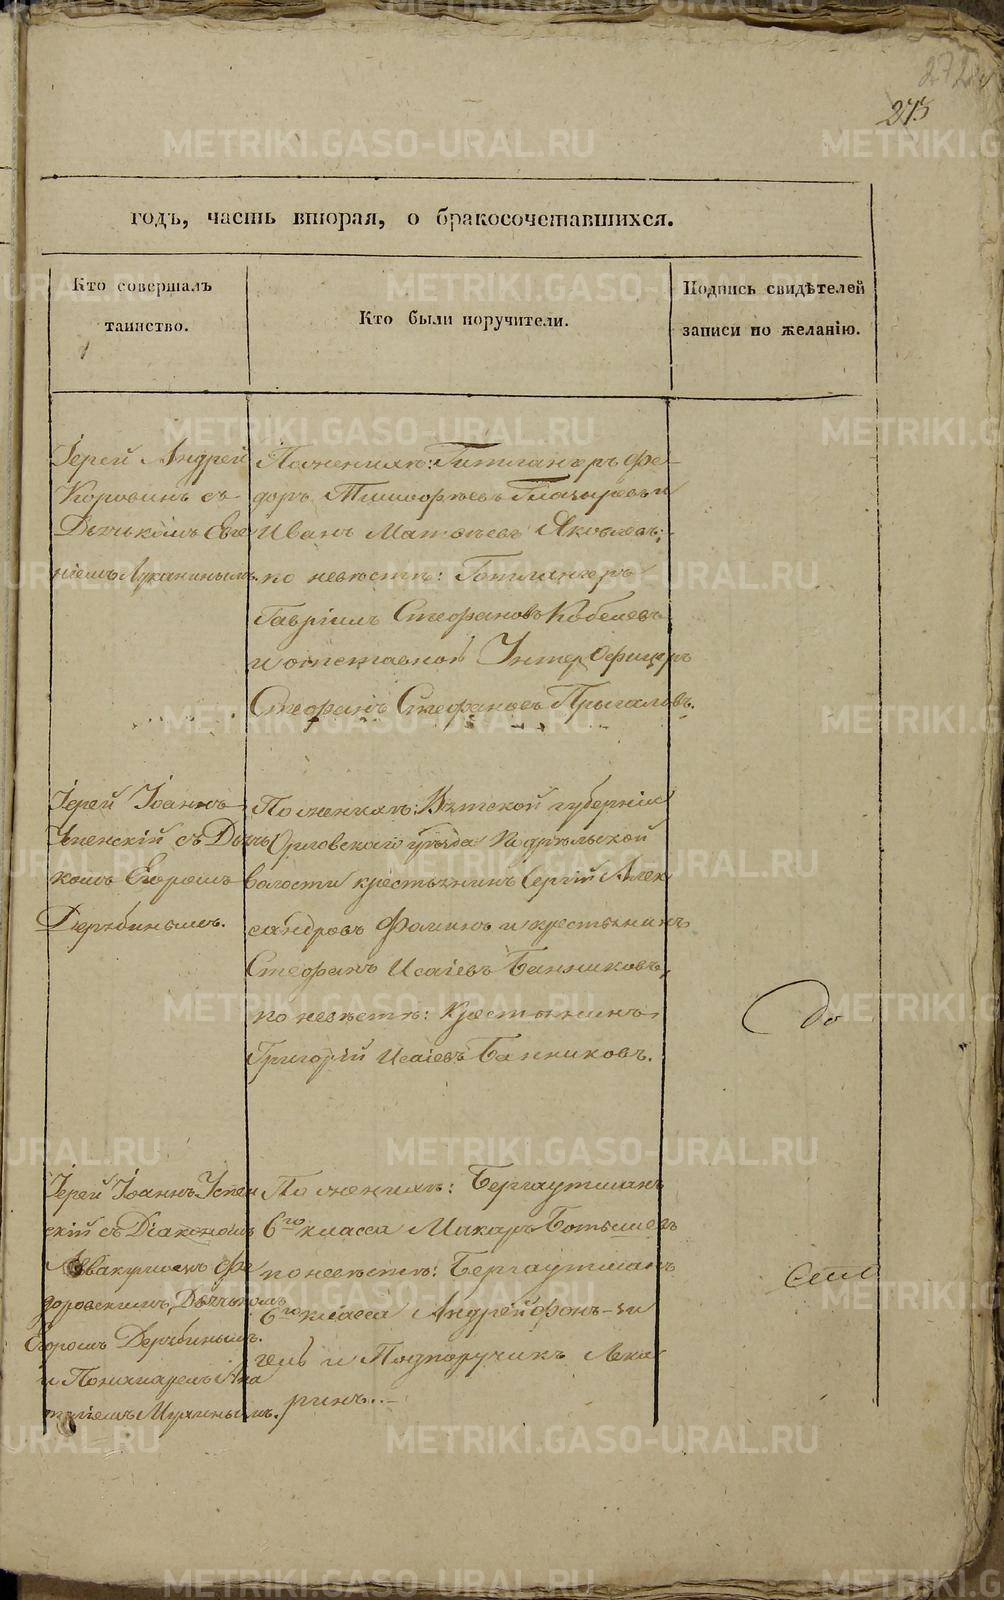 273
годъ, часть вторая, о бракосочетавшихся.
Кто совершалъ
таинство.
Кто были поручители.
Подпись свидѣтелей
записи по желанію.
Іерей Андрей
Коровинъ съ
Дьячькомъ Евге
ніемъ Луканинымъ.
По женихѣ:
доръ Тимофѣевъ Глазыревъ и
Иванъ Матвѣевъ Яковлевъ;
по невѣстѣ:
Гавріилъ Стефановъ Кобелевъ
и отставной Унтер Офицеръ
Стефанъ Стефановъ
Іерей Іоаннъ
Успенскій съ Дьячь
комъ Егоромъ
Дерябинымъ.
По женихѣ: Вятской губерніи
Орловскаго уѣзда Подрѣльской
волости крестьянинъ Сергій Алек
сандровъ Фоминъ и крестьянинъ
Стефанъ Исаіевъ Банниковъ,
по невѣстѣ: Крестьянинъ
Григорій Исаіевъ Банниковъ.
до
Іерей Іоаннъ Успен
скій съ Діакономъ
Аввакумомъ Фе
доровскимъ, Дьячькомъ
Егоромъ Дерябинымъ.
и Пономаремъ Ана
толіемъ
По женихѣ: Бергаутманъ
6го класса Макаръ
по невѣстѣ: Бергаутманъ
6го класса Андрей фонъ-
и Подпоручикъ
METRIKI.GASO-URAL.RU